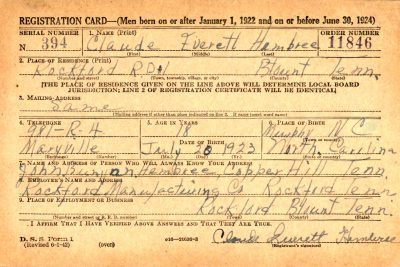 REGISTRATION CARD—(Men born on or after January 1, 1922 and on or before June 30, 1924)
SERIAL NUMBER 1. NAME (Print) ORDER NUMBER
N 394 Claude Everett Hembree 11846
(First) (Middle) (Last)
2. PLACE OF RESIDENCE (Print)
Rockford R.D.1 Blount Tenn.
(Number and street) (Town, township, village, or city) (County) (State)
[THE PLACE OF RESIDENCE GIVEN ON THE LINE ABOVE WILL DETERMINE LOCAL BOARD
JURISDICTION; LINE 2 OF REGISTRATION CERTIFICATE WILL BE IDENTICAL]
3. MAILING ADDRESS
same
[Mailing address if other than place indicated on line 2. If same insert word same]
4. TELEPHONE 5. AGE IN YEARS 6. PLACE OF BIRTH
981-R4 18 Murphy N.C.
DATE OF BIRTH
Maryville July 20 1923 North Carolina
7. NAME AND ADDRESS OF PERSON WHO WILL ALWAYS KNOW YOUR ADDRESS
John Hembree Copper Hill Tenn.
8. EMPLOYER'S NAME AND ADDRESS
Rockford Manufacturing Co. Rockford Tenn
9. PLACE OF EMPLOYMENT OR BUSINESS
Rockford Blount Tenn.
(Number and street or R. F. D. number) (Town) (County) (State)
I AFFIRM THAT I HAVE VERIFIED ABOVE ANSWERS AND THAT THEY ARE TRUE.
D. S. S. Form 1
(Revised 6-1-42) (over) Claude Everett Hembree
(Registrant's signature)